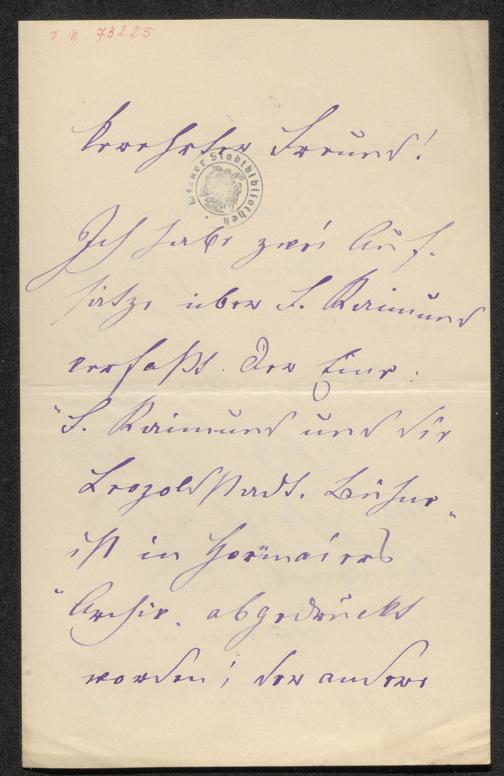 I. N. 73225
Verehrter Freund!
Wiener Stadtbibliothek
Ich habe zwei Auf-
sätze über F. Raimund
verfaßt. Der Eine:
"F. Raimund und die
Leopoldstadt. Bühne"
ist in Hormaiers
"Archiv" abgedruckt
worden; der andere